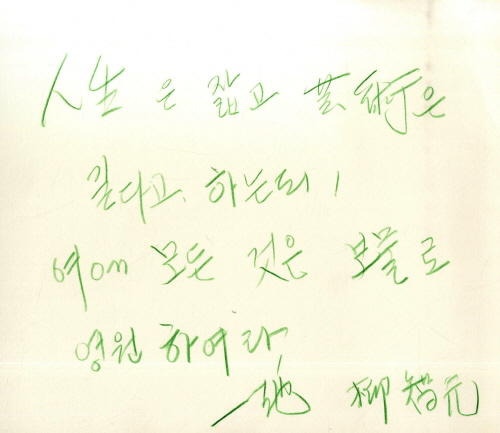 人生은 짧고 芸術은
길다고, 하는되!
모든 것은 보물로
영원 하여라
柳智元